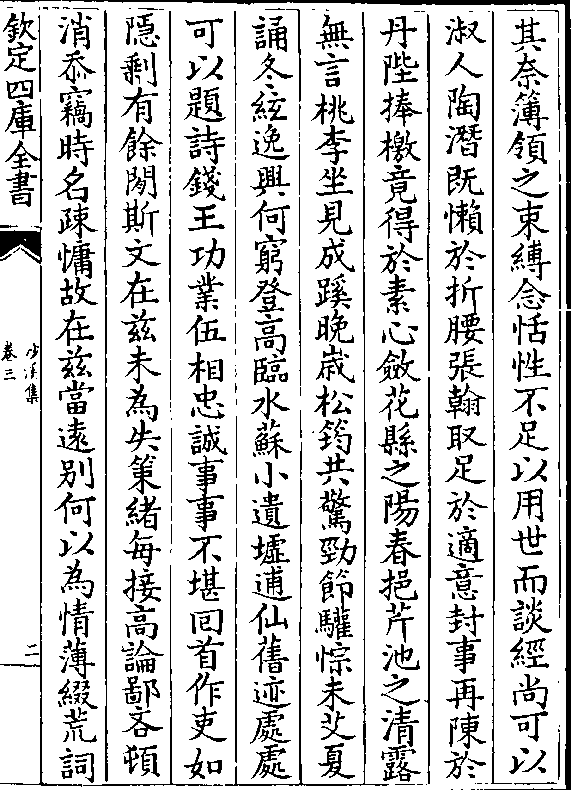 其奈簿領之束縛念恬性不足以用世而談經尚可以
淑人陶潛既懶於折腰張翰取足於適意封事再陳於
丹陛捧檄竟得於素心斂花縣之陽春挹芹池之清露
無言桃李坐見成蹊晚嵗松筠共驚勁節驩悰未艾夏
誦冬絃逸興何窮登高臨水蘇小遺墟逋仙舊迹處處
可以題詩錢王功業伍相忠誠事事不堪回首作吏如
隱剩有餘閑斯文在兹未為失策緒每接高論鄙吝頓
消忝竊時名疎慵故在兹當逺别何以為情薄綴荒詞
欽定四庫全書
少溪集
卷三
二